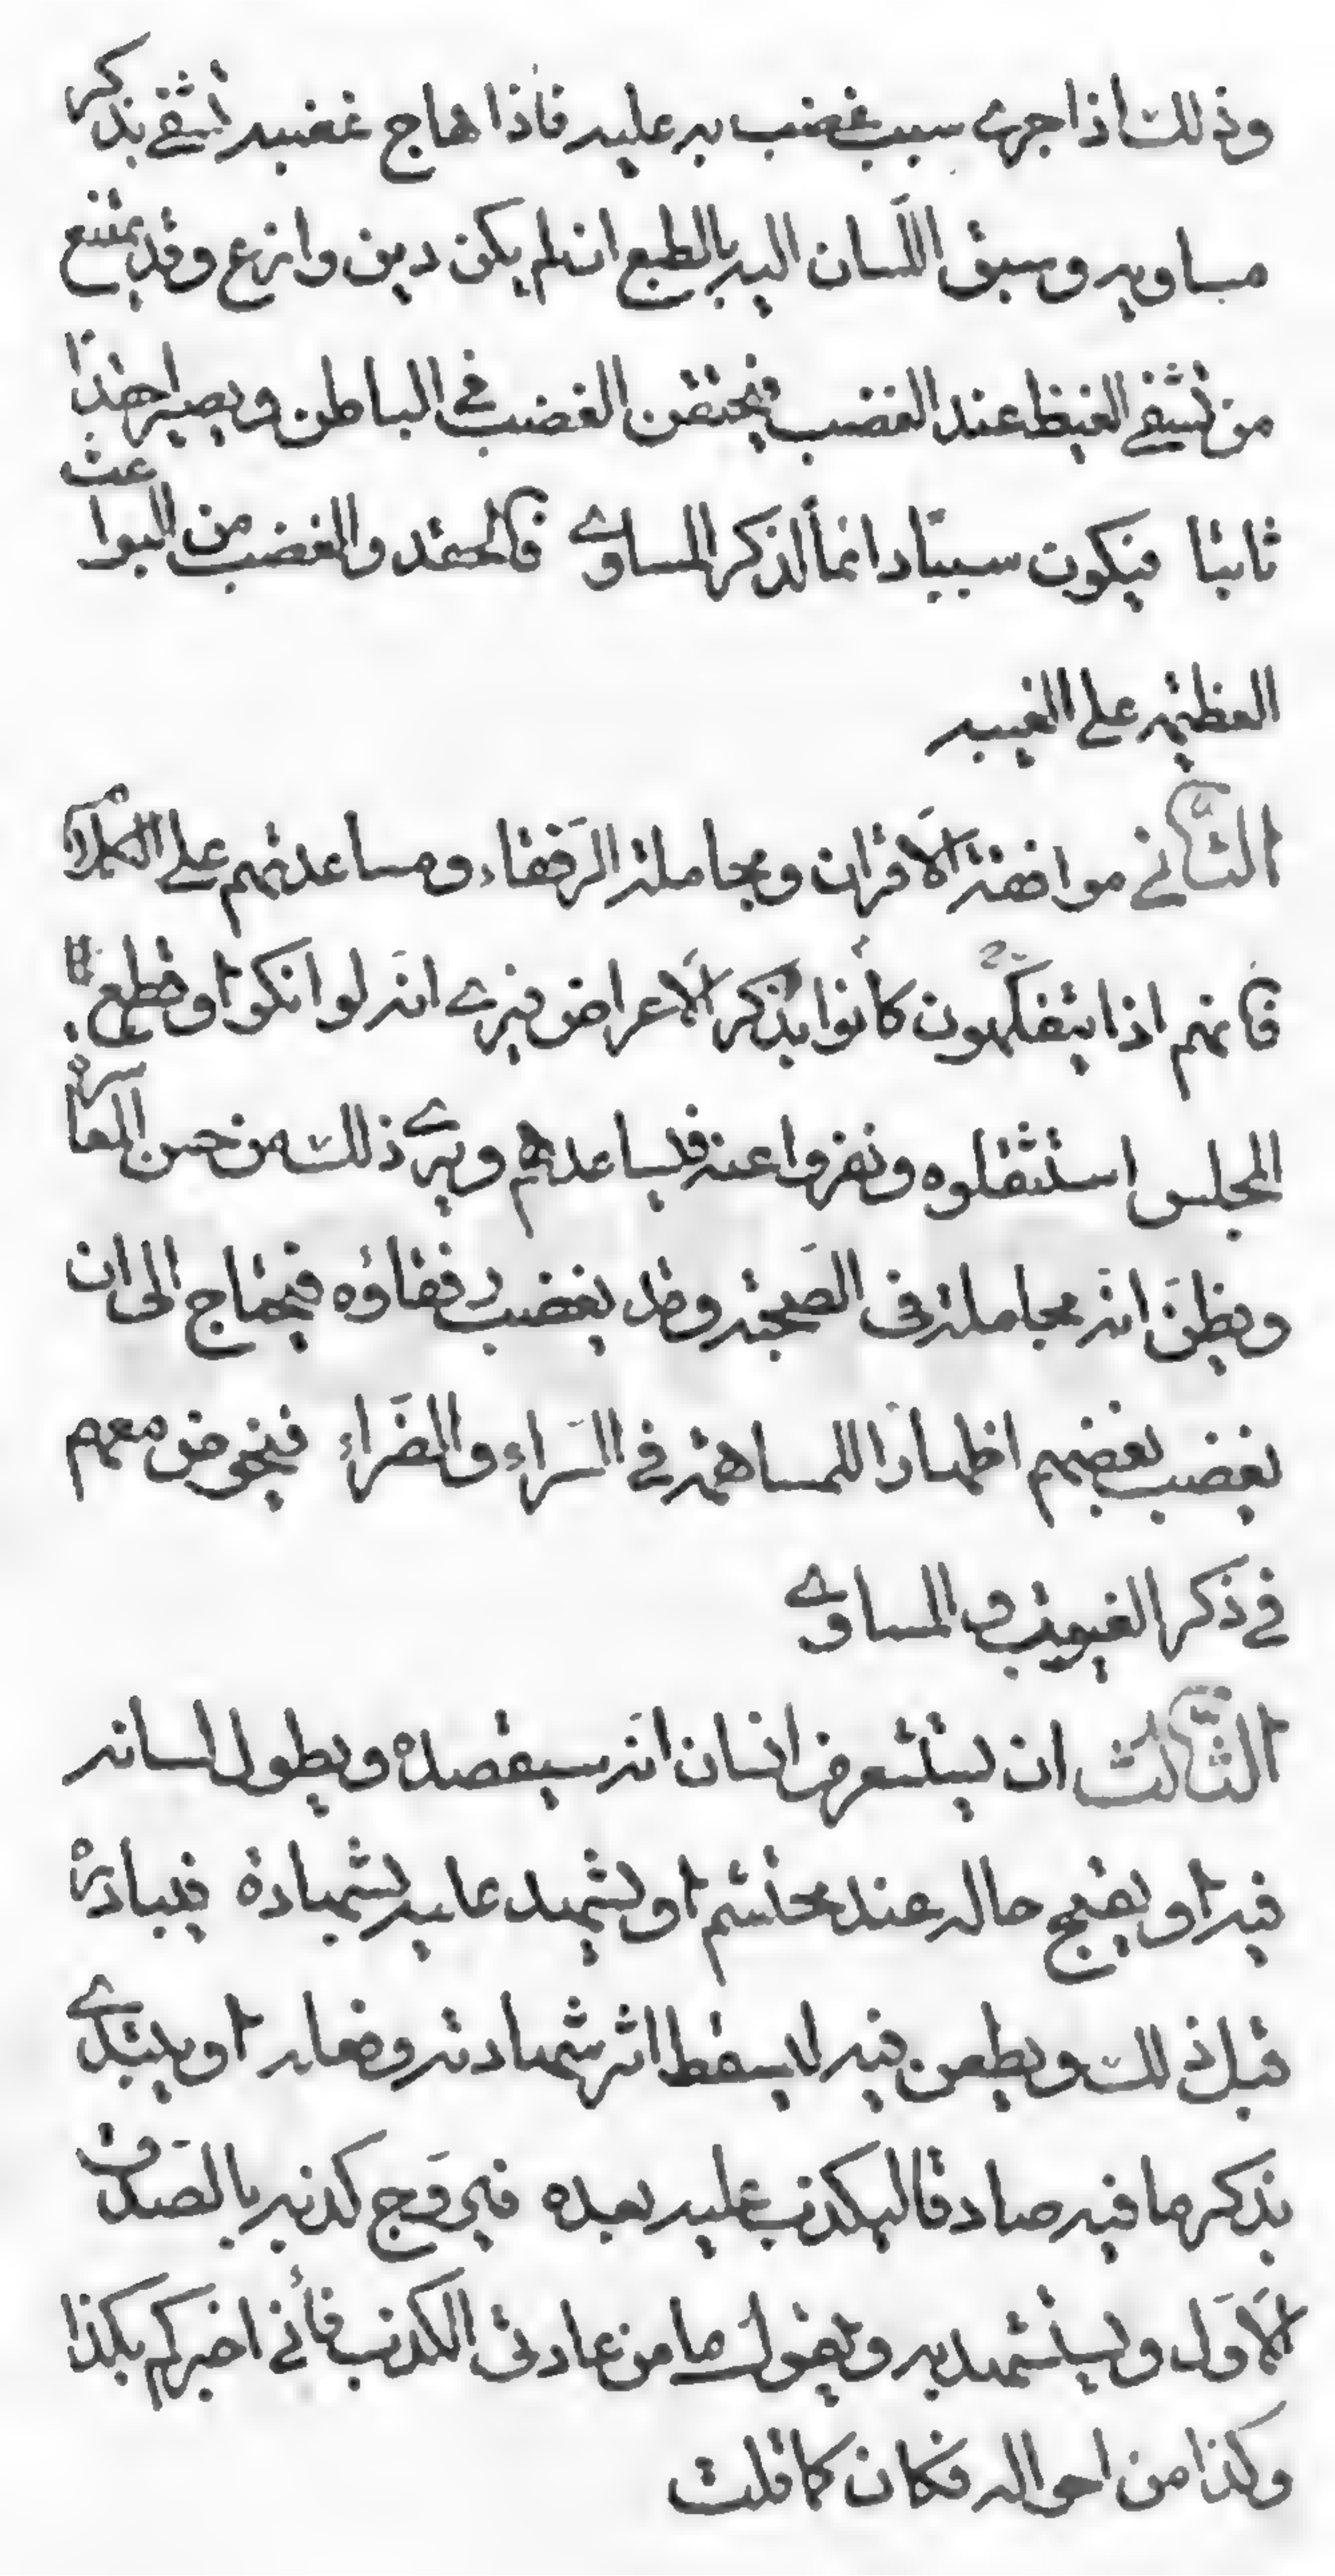 وذلك اذا جرى سبب غضب به عليه فاذا هاج غضبه تشفى بذكر
مساويه وسبق اللسان اليه بالطبع ان لم يكن دين وازع وقد يمتنع
من تشفى الغيظ عند الغضب فيحتقن الغضب في الباطن ويصير حقدا
ثابتا فيكون سببا دائما لذكر المساوى فالحقد والغضب من البواعث
العظيمة على الغيبه
الثّانى موافقة الاقران ومجاملة الرّفقاء ومساعدتهم على الكلام
فانهم اذا يتفكّهون كانوا بذكر الاعراض فيرى انّه لو انكر او قطع
المجلس استثقلوه ونفروا عنه فيساعدهم ويرى ذلك من حسن المعاشرة
ويظنّ انّه مجاملة فى الصّحبة وقد يغضب رفقاؤه فيحتاج الى ان
يغضب بغضبهم اظهارا للمساهمة في السّراء والضّراء فيخوض معهم
في ذكر العيوب والمساوى
الثّالث ان يستشعر من انسان انّه سيقصده ويطول لسانه
فيه او يقبح حاله عند محتشم او يشهد عليه بشهادة فيبادره
قبل ذلك ويطعن فيه ليسقط اثر شهادته وفعله او يبتدى
بذكر ما فيه صادقا ليكذب عليه بعده فيروّج كذبه بالصّدق
الاوّل ويستشهد به ويقول ما من عادتى الكذب فأنى اخبركم بكذا
وكذا من احواله فكان كما قلت